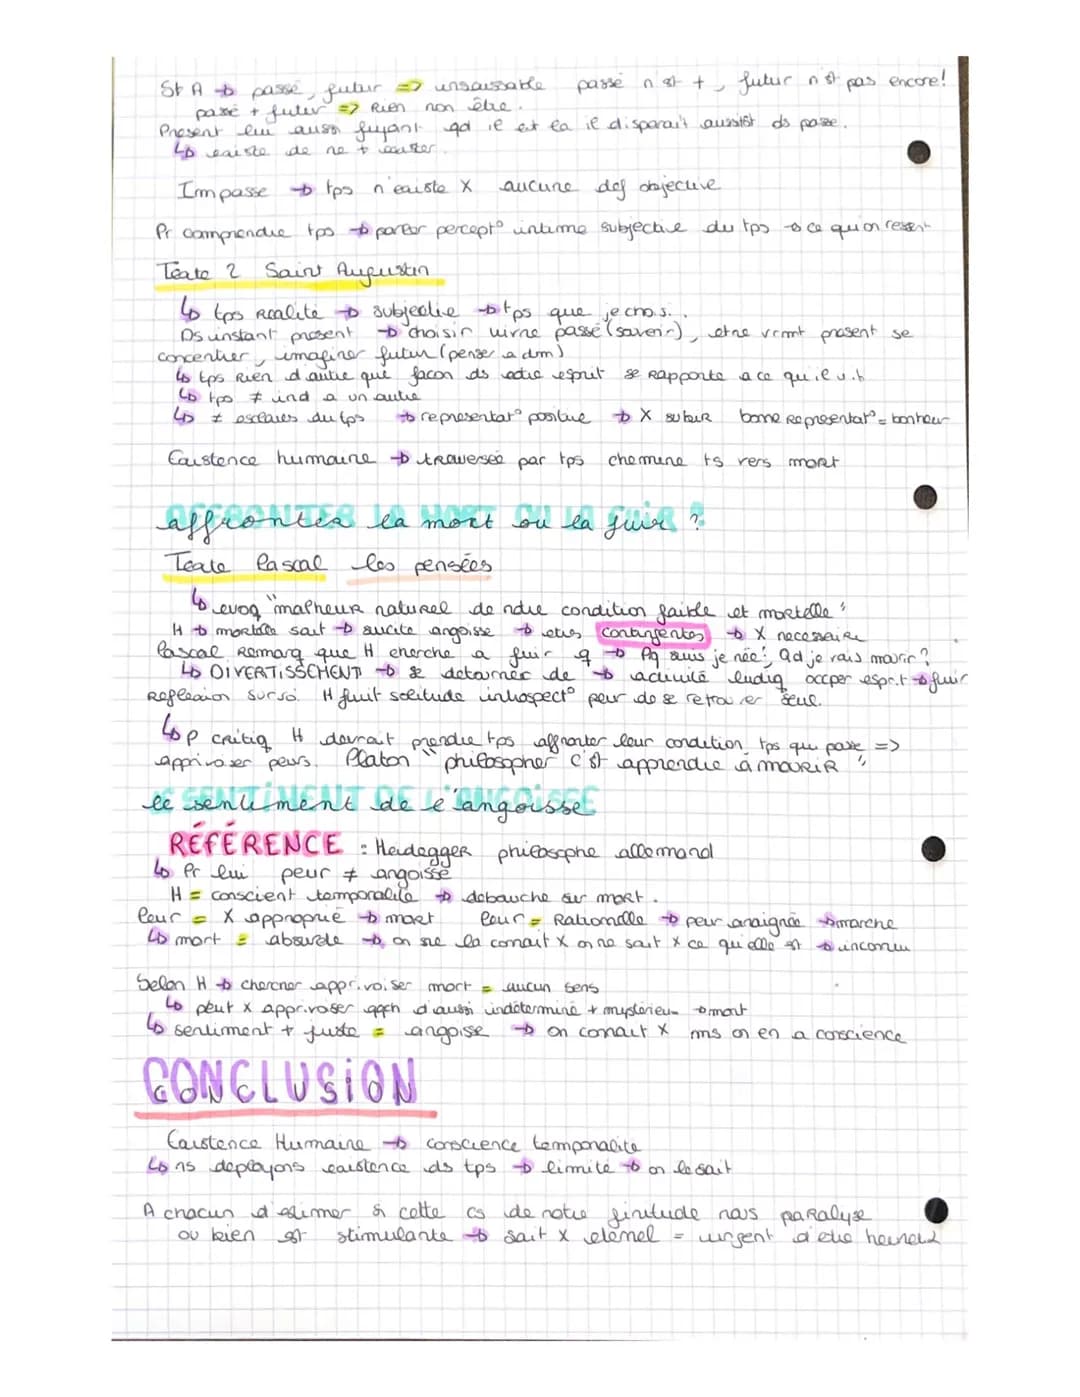 St A → passé, futur => insaisissable passé n'est +, futur n'est pas encore!
passé + futur => Rien non être.
Présent lui aussi fuyant qd il est là il disparait aussitôt ds passé.
↳ existe de ne + exister.
Impasse → tps n'existe X aucune def objective
Pr comprendre tps → partir percept° intime subjective du tps → ce qu'on ressent
Texte 2 Saint Augustin
↳ tps Réalité → subjective → tps que je chois.
Ds instant présent → choisir vivre passé (savoir), etre vrmt présent se
concentrer, imaginer futur (penser a dm)
↳ tps Rien d'autre que façon ds notre esprit se Rapporte a ce qu'il vit
↳ tps ≠ ind a un autre
↳ ≠ esclaves du tps → représentat° positive → X subir bonne Représentat° = bonheur
Existence humaine → traversée par tps chemine ts vers mort
affronter la mort ou la fuir ?
Texte Pascal les pensées
↳ evoq "malheur naturel de notre condition faible et mortelle"
H → mortelle sait → suscite angoisse → etres contingentes → X nécessaire
Pascal Remarq que H cherche a fuir q → Pq suis je née?, qd je vais mourir?
↳ DIVERTISSEMENT → se détourner de → activité ludiq occper esprit → fuir
Réflexion sur soi. H fuit solitude introspect° peur de se retrouver seul.
↳ P critiq H devrait prendre tps affronter leur condition, tps qui passe =>
apprivoiser peurs. Platon "philosopher c'st apprendre à mourir"
le sentiment de l'angoisse
RÉFÉRENCE : Heidegger philosophe allemand
↳ Pr lui peur ≠ angoisse
H = conscient temporalité → débauche sur mort.
Peur = X approprié → mort Peur = Rationnelle → peur araignée → marche
↳ mort = absurde → on ne la connait X on ne sait X ce qu'elle st → inconnu
Selon H → chercher apprivoiser mort = aucun sens
↳ peut X apprivoiser qqch d'aussi indéterminé + mystérieux → mort
↳ sentiment + juste = angoisse → on connait X mns on en a conscience
CONCLUSION
Existence Humaine → conscience temporalité
↳ ns déployons existence ds tps → limité → on le sait
A chacun d'estimer si cette cs de notre finitude nous paralyse
ou bien est stimulante → sait X éternel = urgent d'etre heureux